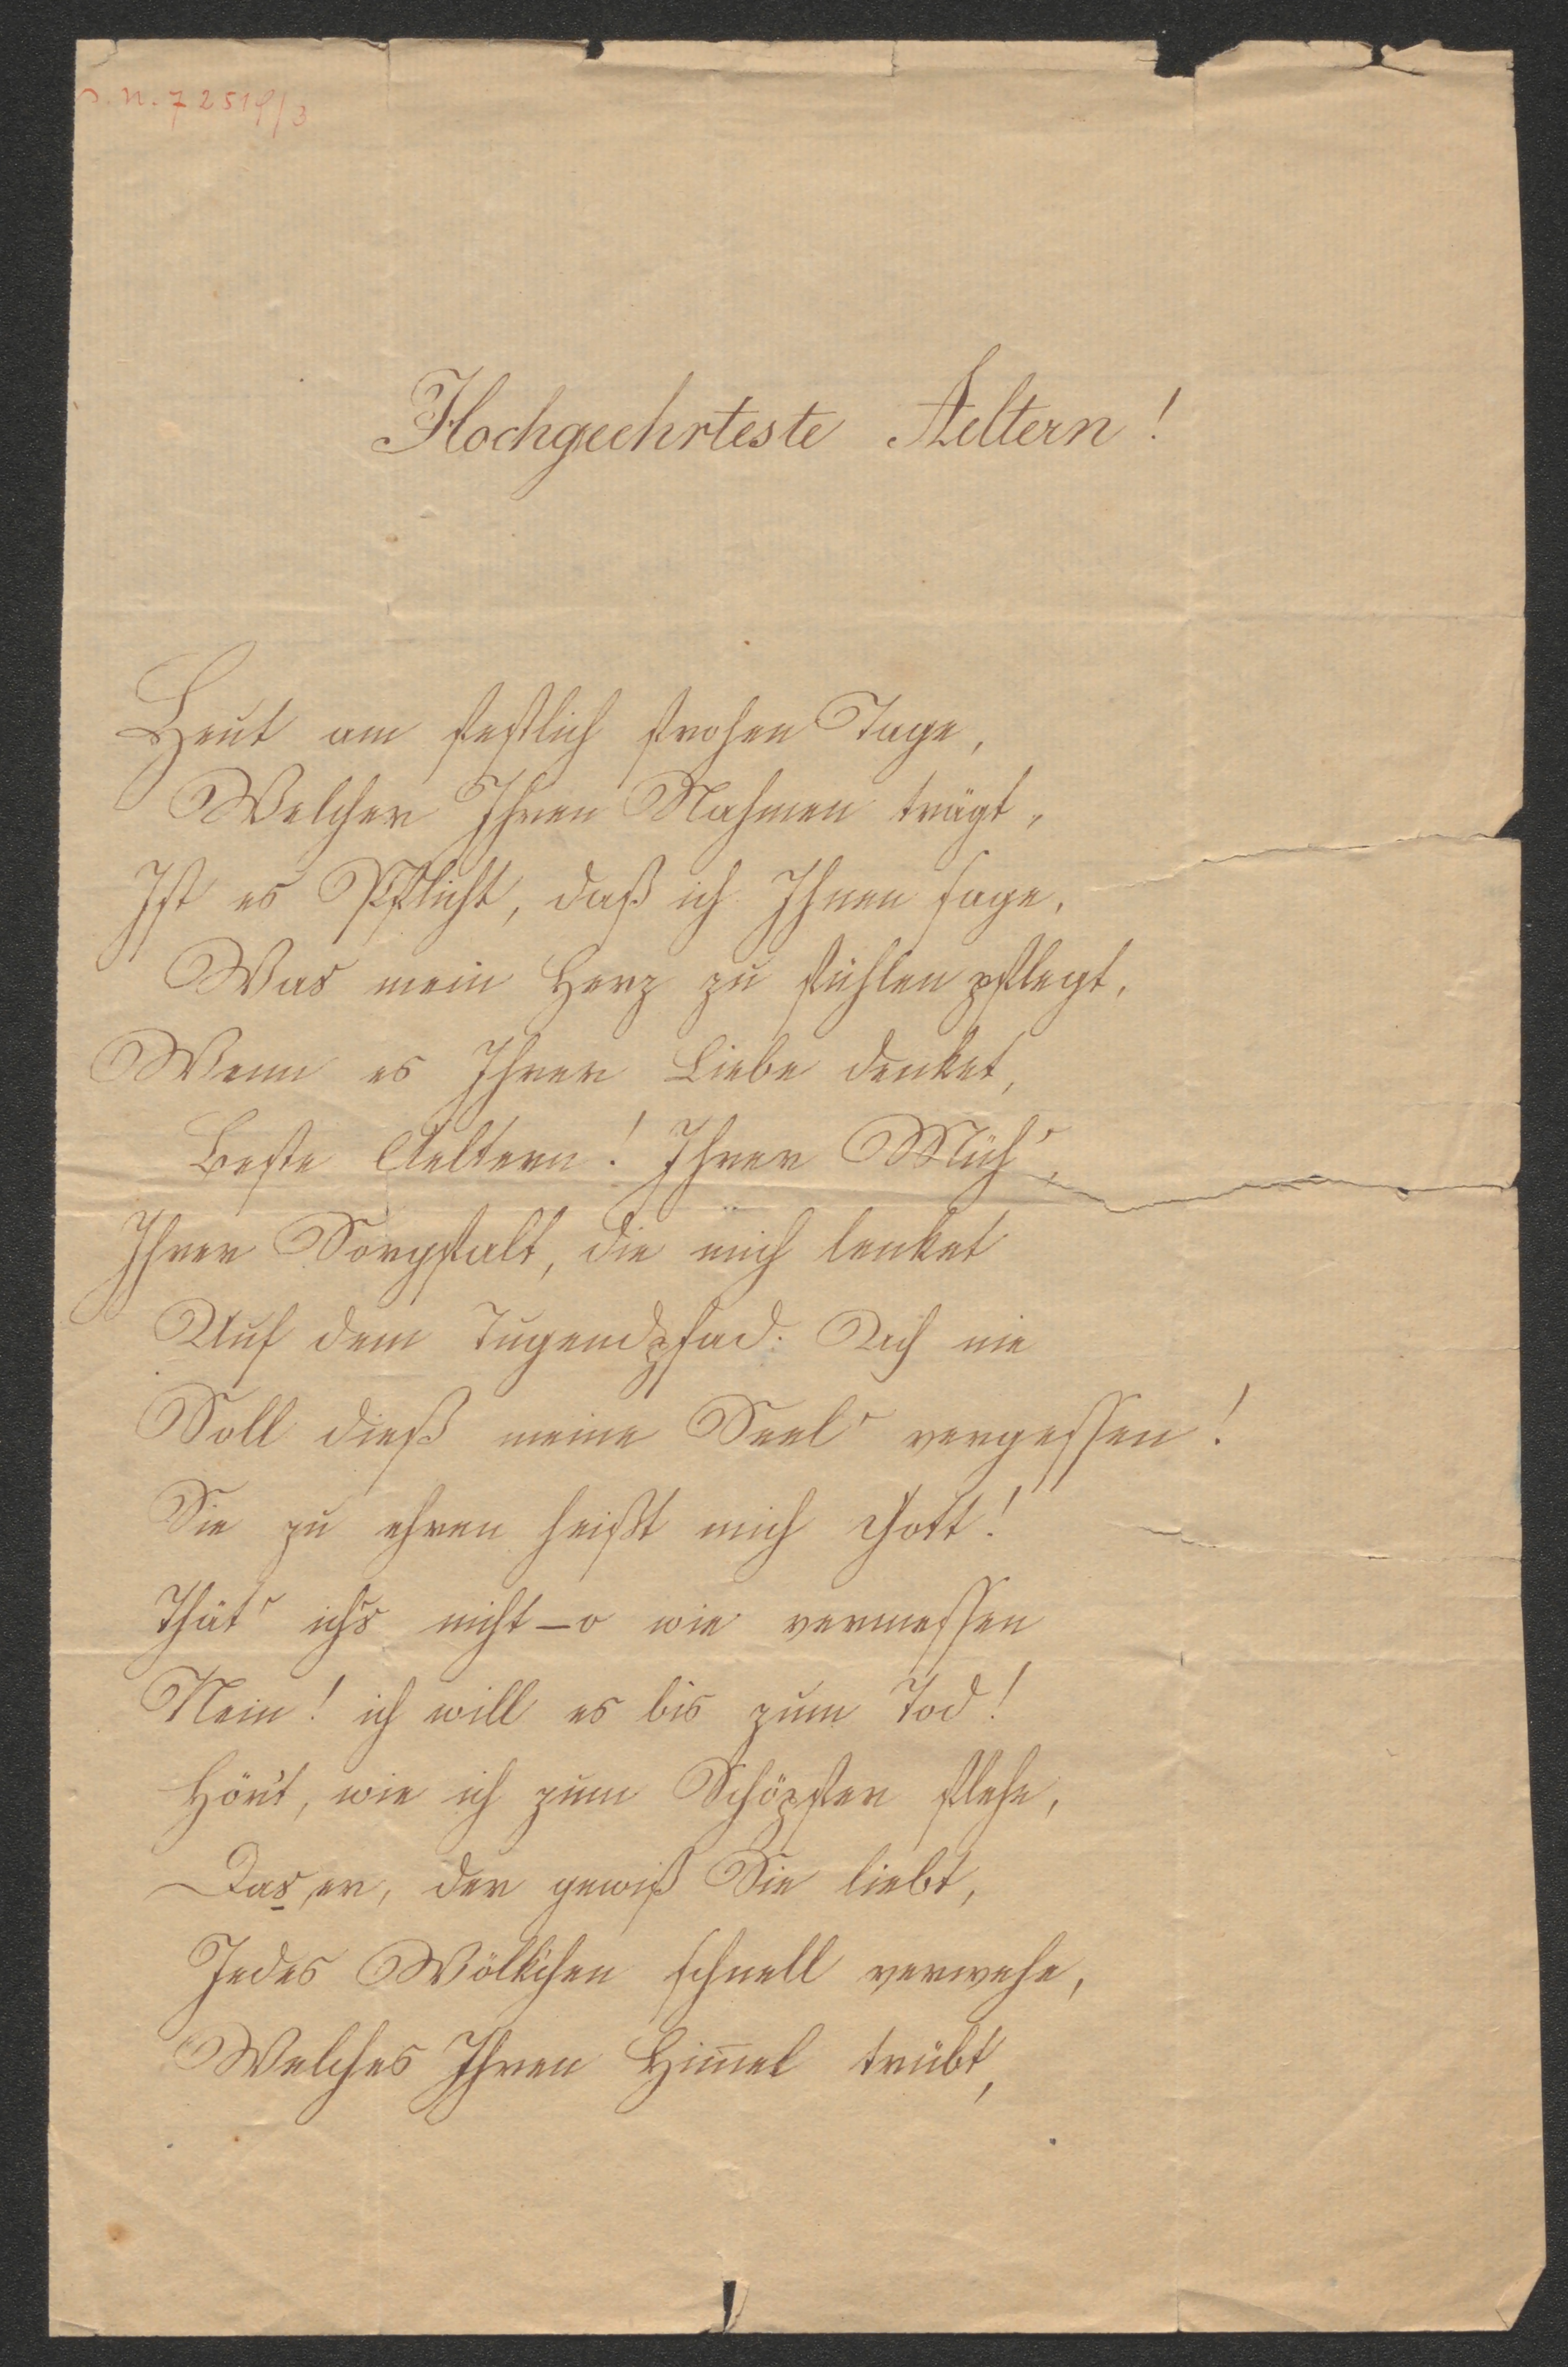 o. n. 72519/3
Hochgeehrteste Aeltern!
Heut am festlich frohen Tage,
Welcher Ihren Nahmen trägt,
Ist es Pflicht, daß ich Ihnen sage,
Was mein Herz zu fühlen pflegt,
Wenn es Ihrer Liebe denket,
Beste Aeltern! Ihrer Müh',
Ihrer Sorgfalt, die mich lenket
Auf dem Tugendpfad. Ach nie
Soll dieß meine Seel' vergessen!
Sie zu ehren heißt mich Gott!
Thät' ich's nicht – o wie vermessen
Nein! ich will es bis zum Tod!
Hör't, wie ich zum Schöpfer flehe,
Das er, der gewiß Sie liebt,
Jedes Wölkchen schnell verwehe,
Welches Ihren Him̅el trübt,